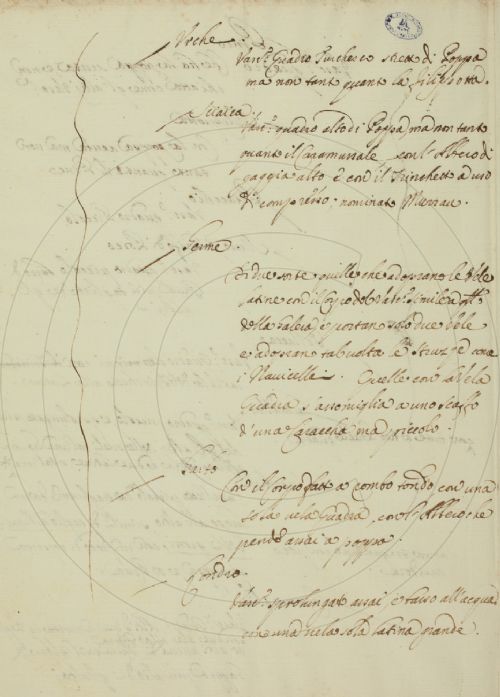 Urche.
Van.º Quadro Purchesco stretto di Poppa
ma non tant quant la
Sciaica.
Van.º quadro alto di Poppa ma non tanto
quant il Caramussale, con l'Albero di
gaggia alto è con il Trinchetto à uso
di nominato
Germe
Di due sorte quelle che adoprano le Vele
latine con il Corpo simile a
della Galera, e portano solo due Vele
e adoprano talvolta le come
i Navicelli. Quelle con la Vela
Quadra s'assomiglia a uno Scaffo
d'una Caracca ma piccolo.
Con il Corpo fatt a tondo con una
sola vela Quadra, con l'Albero che
pende assai a poppa.
Van.º assai e basso all'acqua
con una vela sola latina grande.